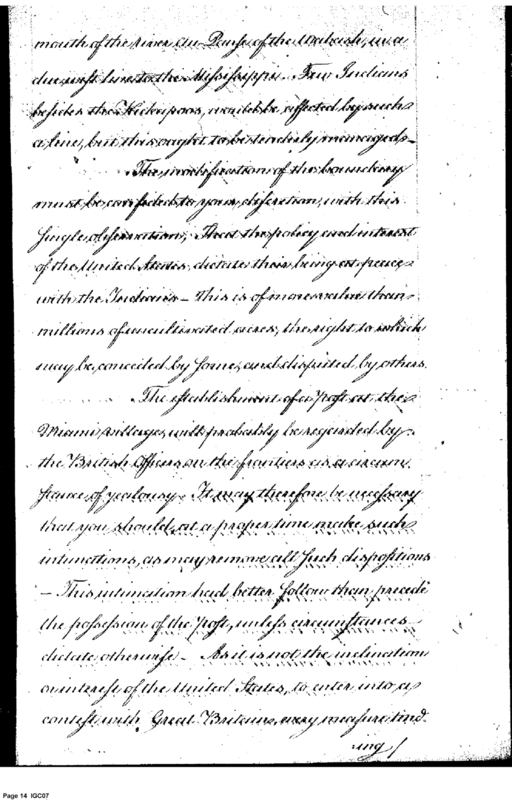 mouth of the river Au-Panse of the Wabash, in a
due west line to the Mississippi. Few Indians
besides the Kickapoos, would be affected by such
a line, but this ought to be tenderly managed-
The modification of the boundary
must be confided to your discretion, with this
single observation, That the policy and interest
of the United States dictate their being at peace
with the Indians - This is of more value than
millions of uncultivated acres, the right to which
may be conceited by some, and disputed by others.
The establishment of a Post at the
Miami village, will probably be regarded by
the British Officers on the frontiers as a circum
stance of jealousy - It may therefore be necessary
that you should, at a proper time make such
intimations, as may remove all such dispositions
- This intimation had better follow than precede
the possession of the Post, unless circumstances
dictate otherwise - As it is not the inclination
or interest of the United States, to enter into a
contest with Great Britain, every measure tend
ing /
Page 14 IGC07